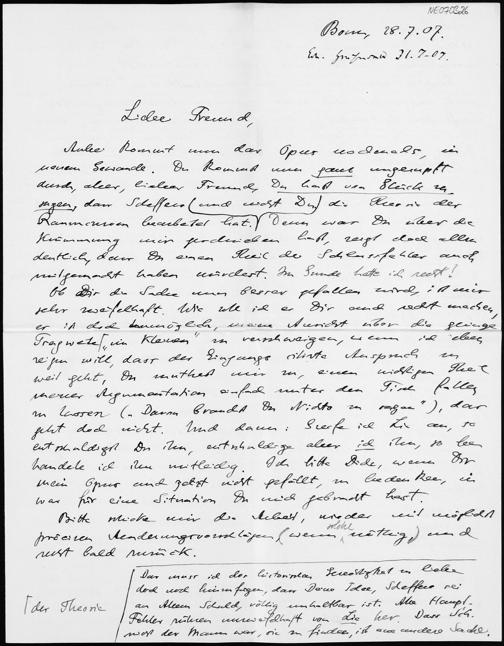 NE070326
Bonn, 28.7.07.
31.7.07.
Lieber Freund,
Anbei kommt nun das Opus nochmals, in
neuem Gewande. Du kommst nun ganz ungerupft
durch, aber, lieber Freund, Du hast von Glück zu
sagen, dass Scheffers (und nicht Du) die Theorie der
Raumkurven bearbeitet hat. Denn was Du über die
Krümmung mir geschrieben hast, zeigt doch allzu
deutlich, dass Du einen Theil der Schlussfehler auch
mitgemacht haben würdest. Im Grunde hatte ich recht!
Ob Dir die Sache nun besser gefallen wird, ist mir
sehr zweifelhaft. Wie soll ich es Dir auch recht machen,
es ist doch unmöglich, meine Ansicht über die geringe
Tragweite „im Kleinen" zu verschweigen, wenn ich eben
zeigen will, dass der Eingangs citirte Anspruch zu
weit geht. Du muthest mir zu, einen wichtigen Theil
meiner Argumentation einfach unter den Tisch fallen
zu lassen („Davon brauchst Du Nichts zu sagen"), das
geht doch nicht. Und dann: Greife ich Lie an, so
entschuldigst Du ihn, entschuldige aber ich ihn, so
handele ich ihm mitleidig. Ich bitte Dich, wenn Dir
mein Opus auch jetzt nicht gefällt, zu bedenken, in
was für eine Situation Du mich gebracht hast.
Bitte schicke mir die Arbeit, wieder mit möglichst
präcisen Aenderungsvorschlägen (wenn solche nöthig) und
recht bald zurück.
Das muss ich der historischen Gerechtigkeit zu Liebe
doch noch hinzufügen, dass Deine Idee, Scheffers sei
an Allem Schuld, völlig unhaltbar ist. Alle Haupt-
Fehler rühren unzweifelhaft von Lie her. Dass Sch.
der Mann war, sie zu finden, ist eine andere Sache.
der Theorie